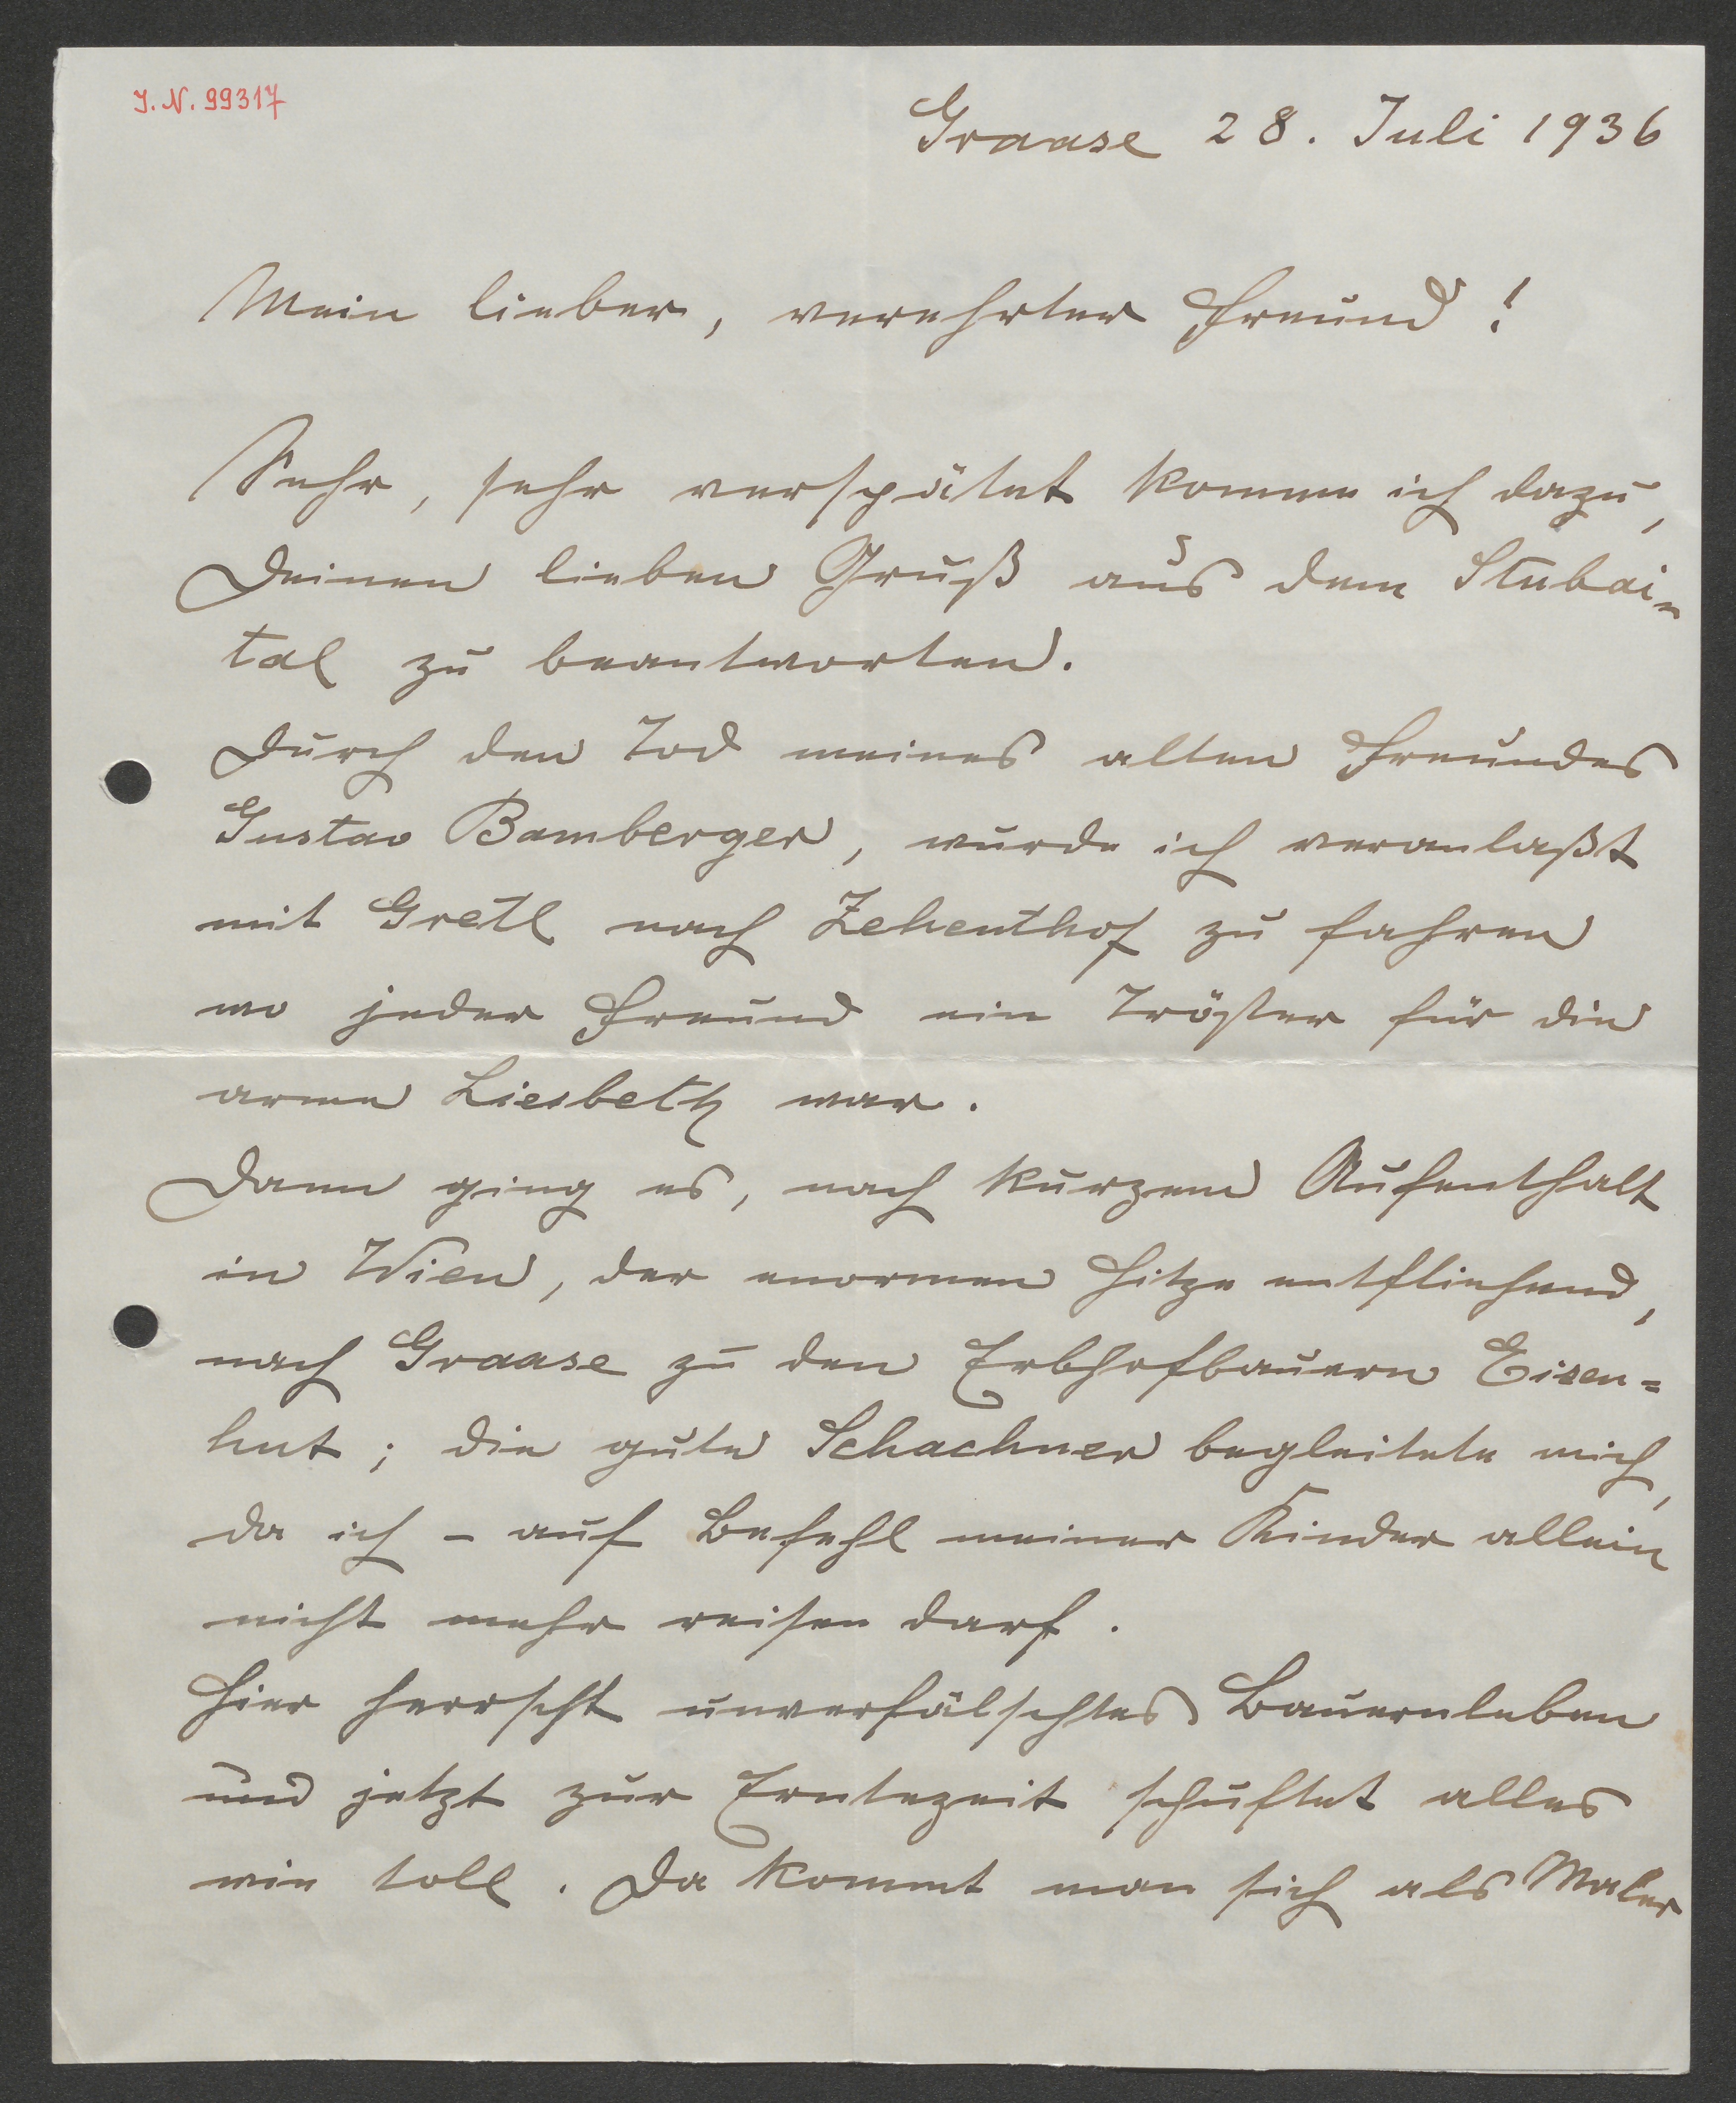 J.N. 99317
Graase 28. Juli 1936
Mein lieber, verehrter Freund!
Sehr, sehr verspätet komme ich dazu,
Deinen lieben Gruß aus dem Stubai-
tal zu beantworten.
Durch den Tod meines alten Freundes
Gustav Bamberger, wurde ich veranlaßt
mit Gretl nach Zehenthof zu fahren
wo jeder Freund ein Tröster für die
arme Liesbeth war.
Dann ging es, nach kurzem Aufenthalt
in Wien, der enormen Hitze entfliehend,
nach Graase zu den Erbhofbauern Eisen=
hut; die gute Schachner begleitete mich,
da ich – auf Befehl meiner Kinder allein
nicht mehr reisen darf.
Hier herrscht unverfälschtes Bauernleben
und jetzt zur Erntezeit schuftet alles
wie toll. Da kommt man sich als Maler